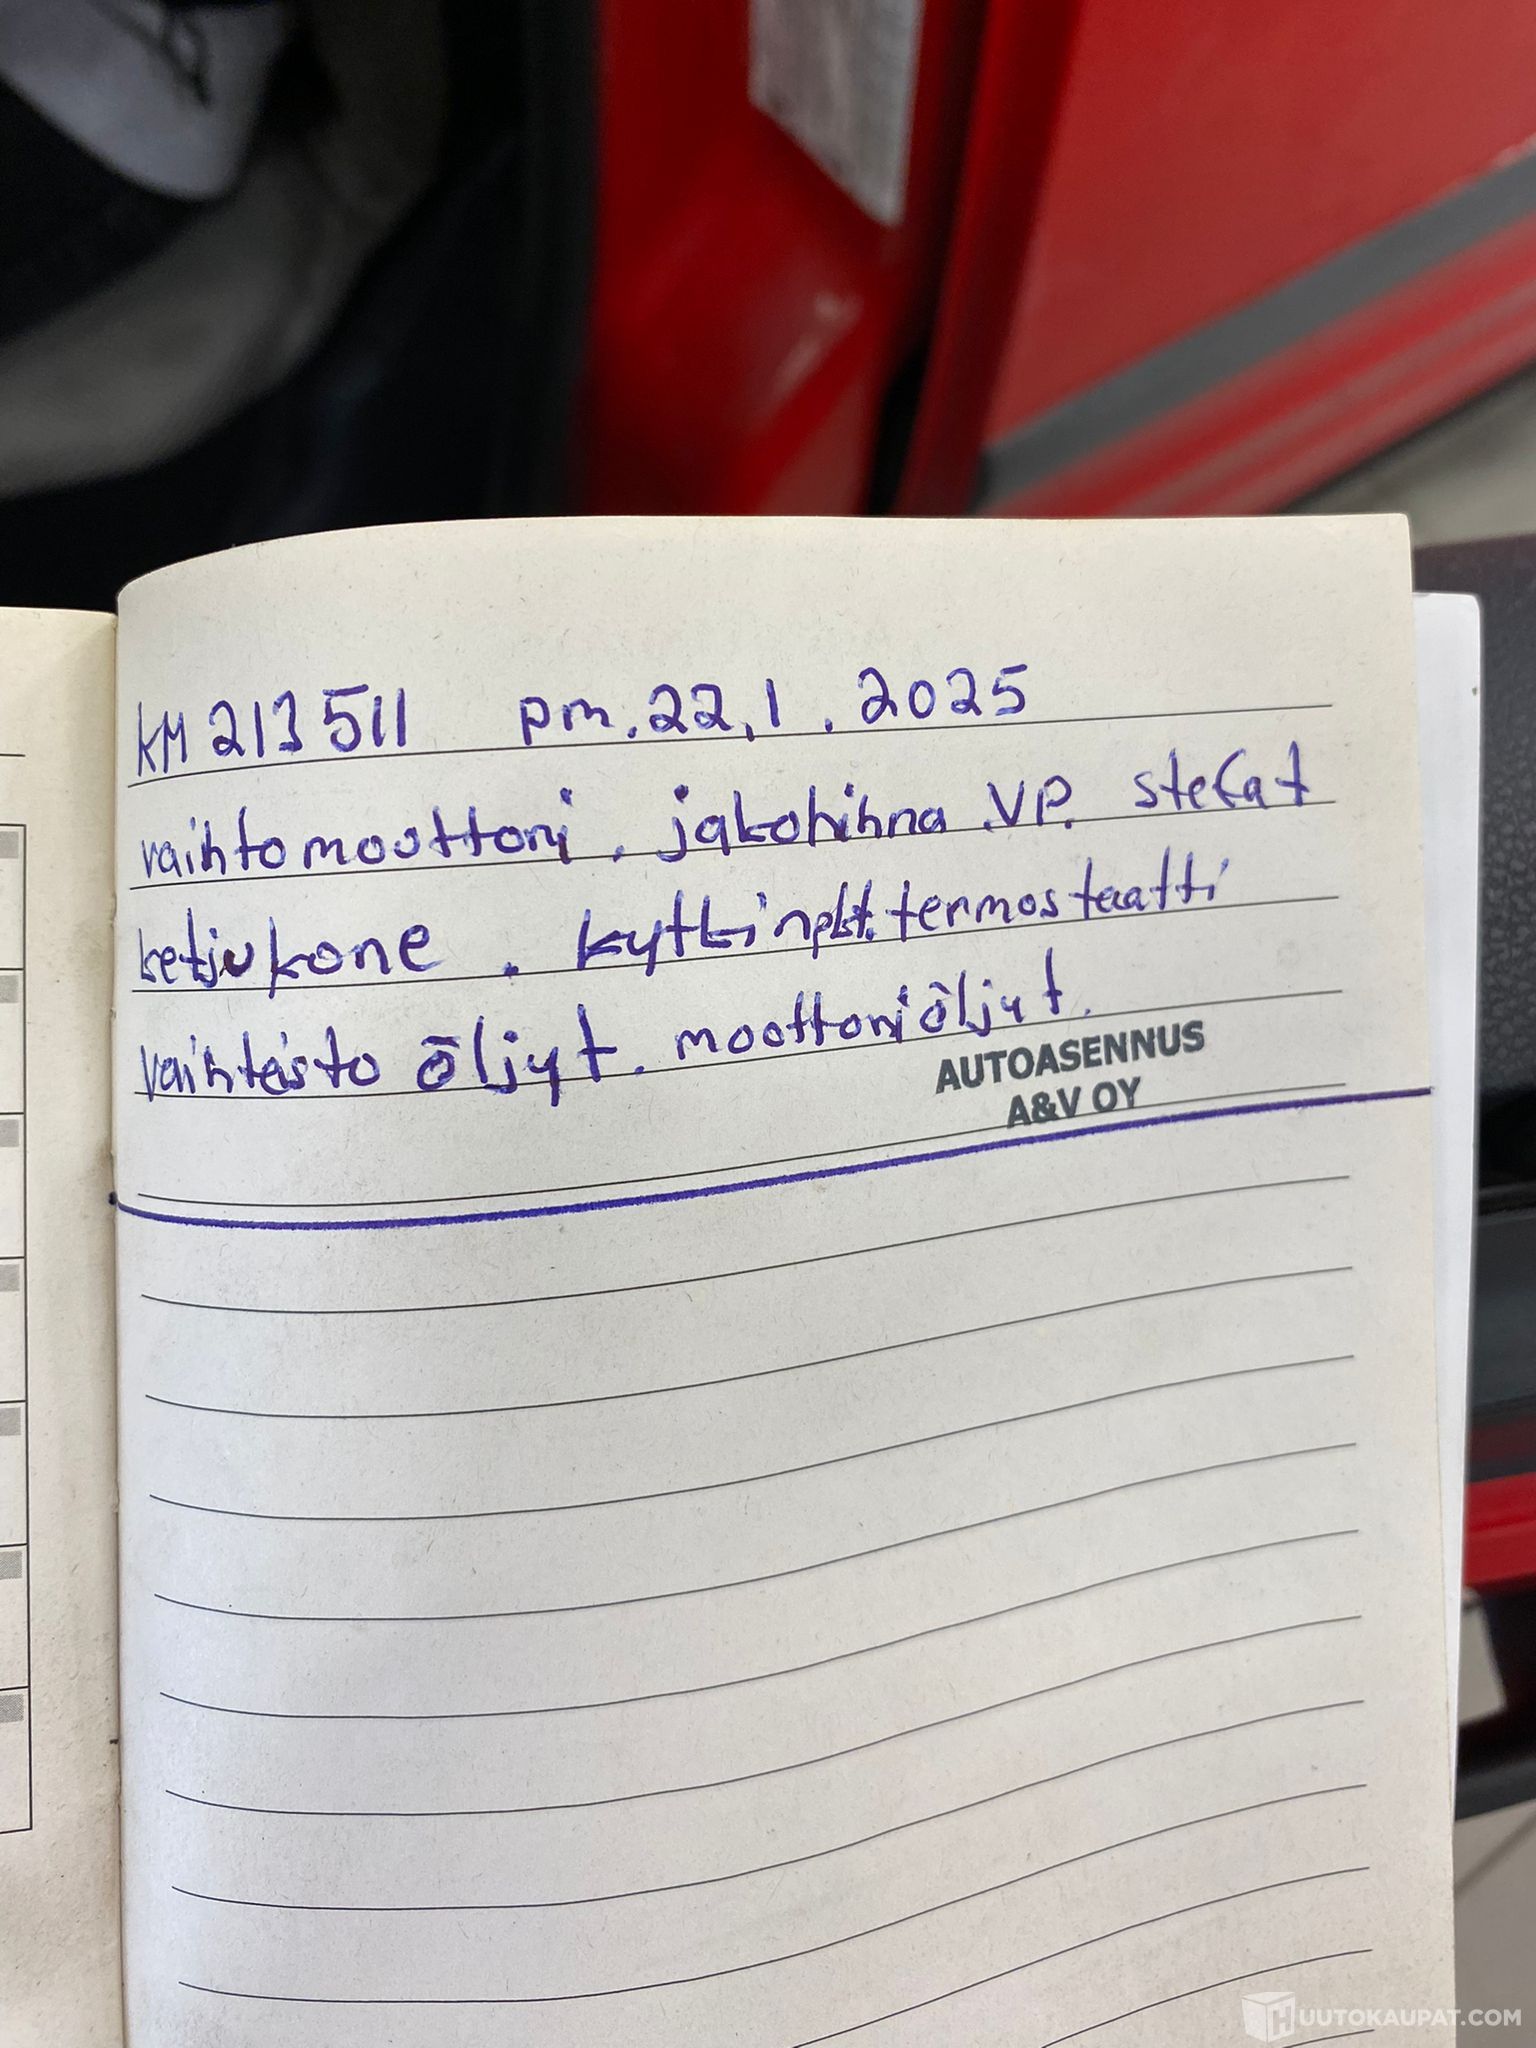 KM 213511 pm. 22.1.2025
vaihtomoottori. jakohihna .VP. stefat
ketjukone. kytkinpkt. termostaatti
vaihteisto öljyt. moottoriöljyt.
AUTOASENNUS
A&V OY
HUUTOKAUPAT.COM